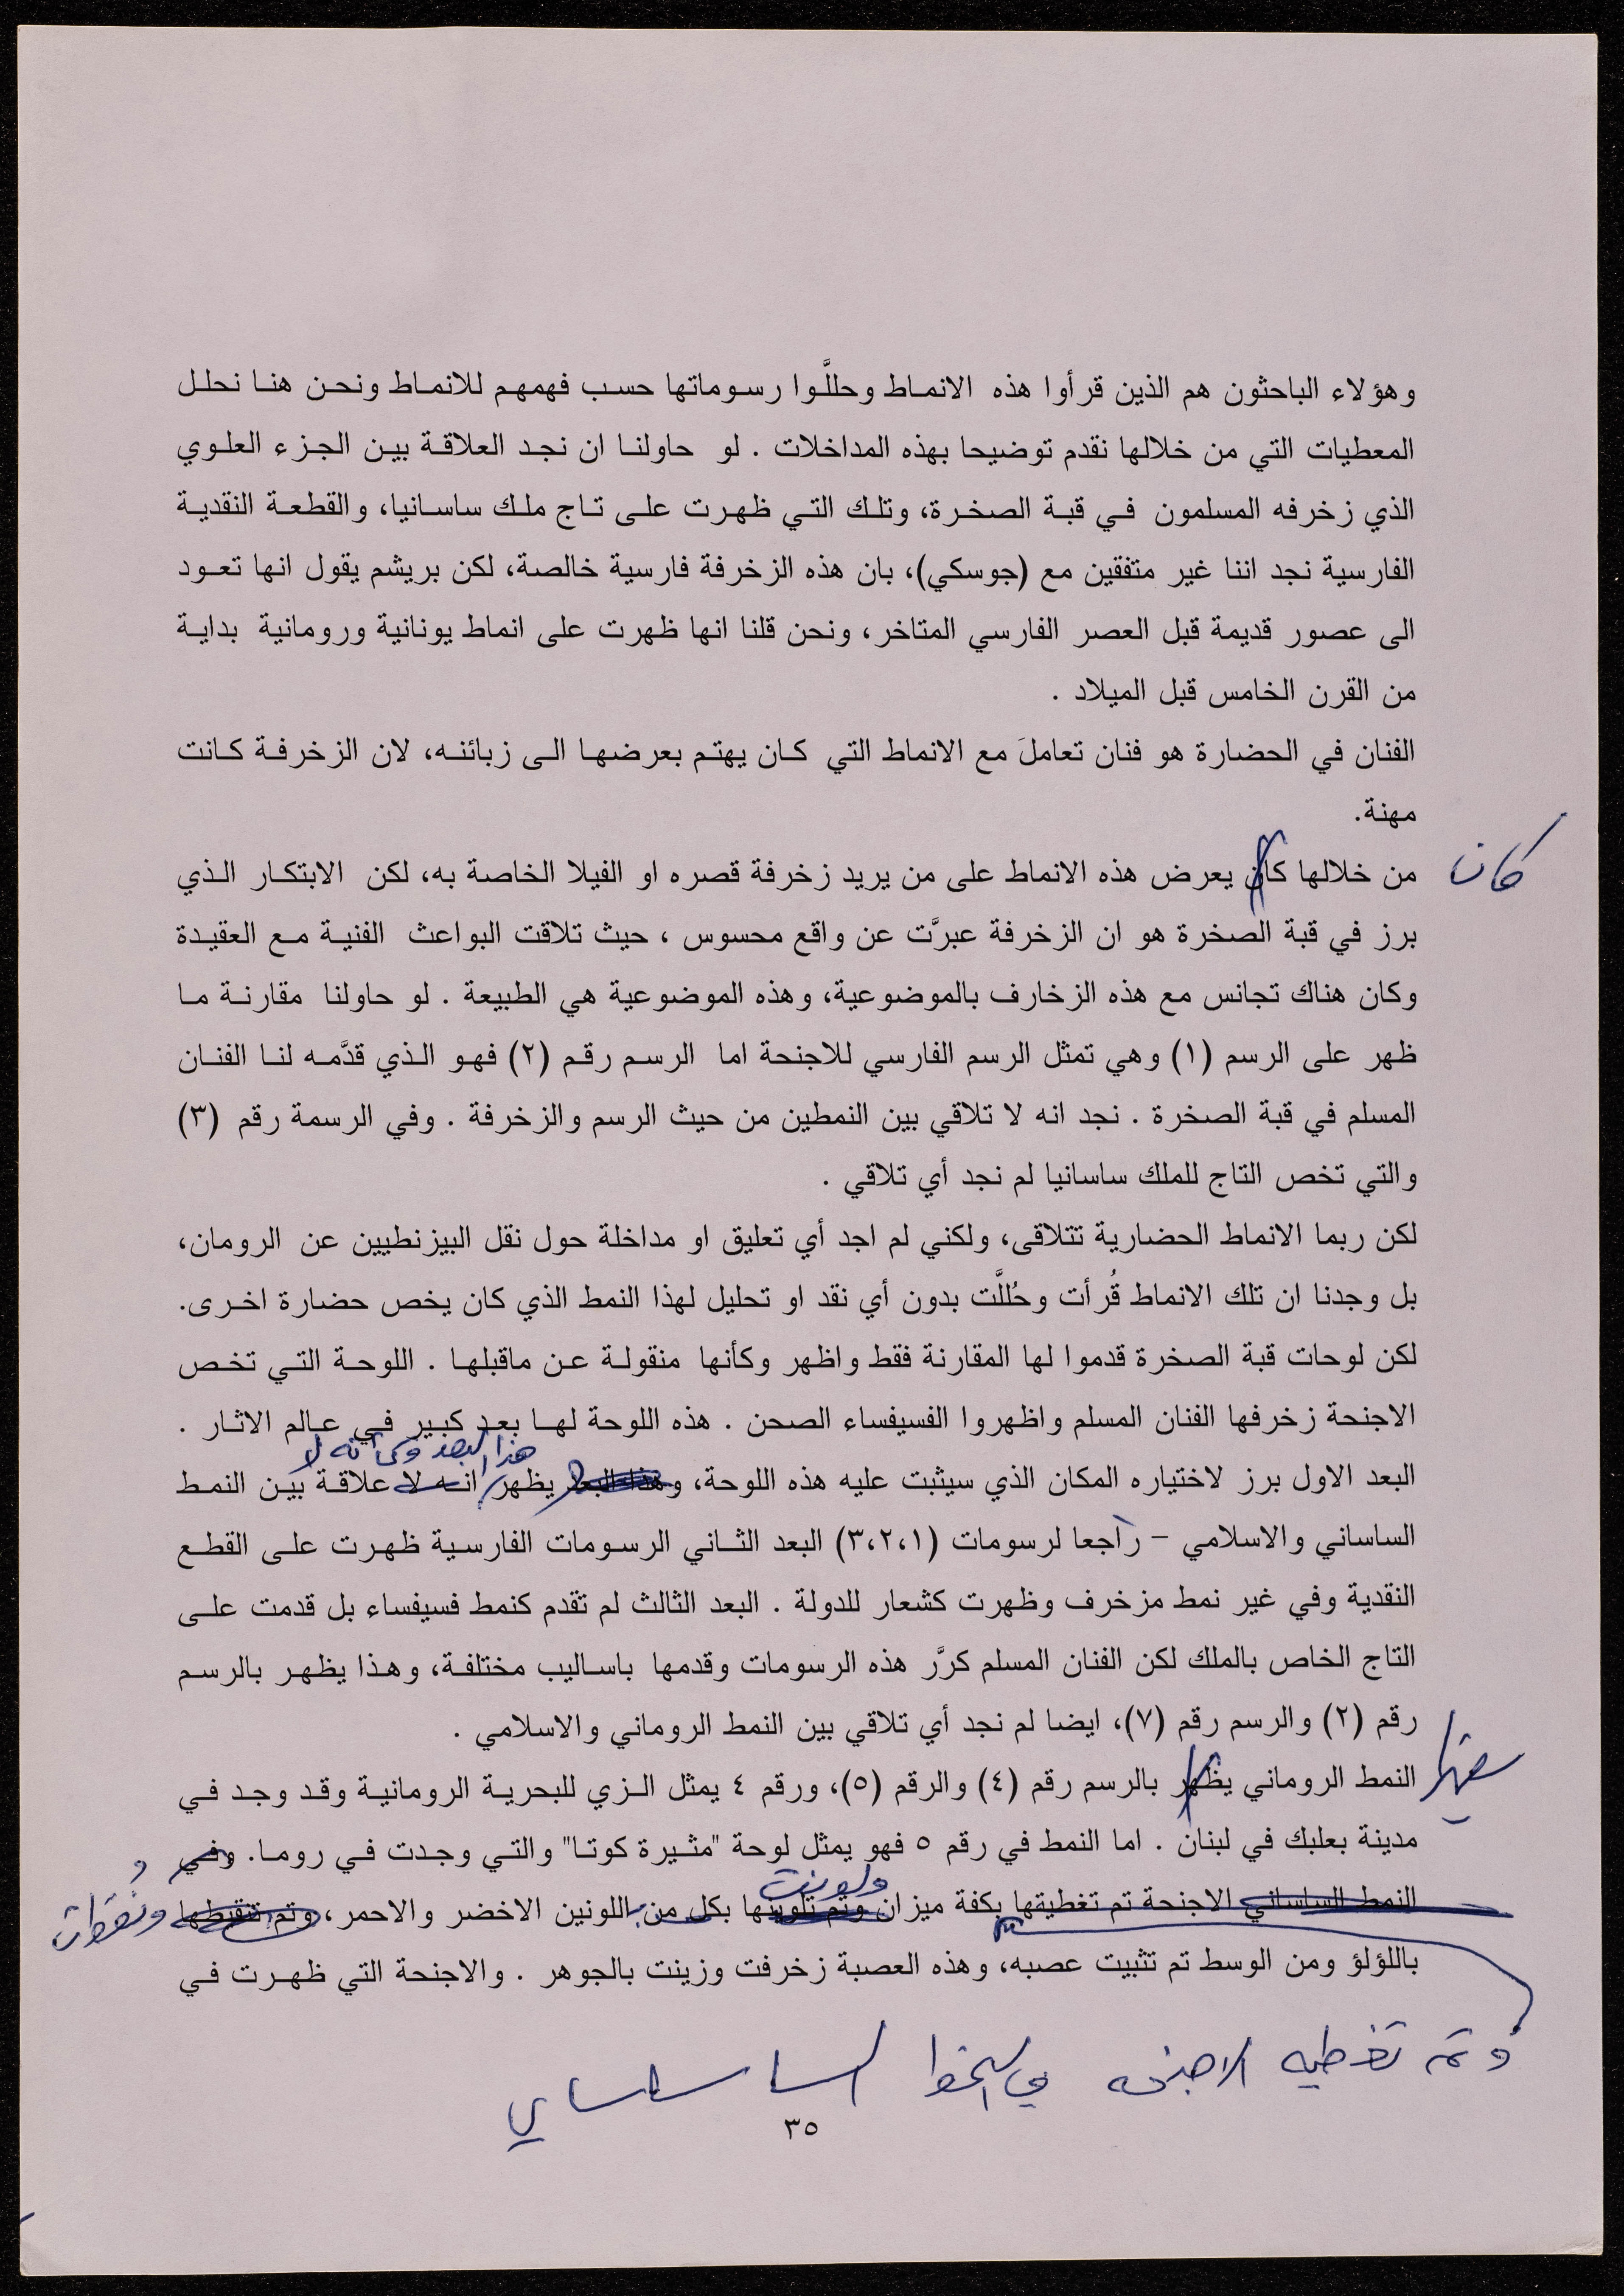 وهؤلاء الباحثون هم الذين قرأوا هذه الانماط وحللَّوا رسوماتها حسب فهمهم للانماط ونحن هنا نحلل
المعطيات التي من خلالها نقدم توضيحا بهذه المداخلات . لو حاولنا ان نجد العلاقة بين الجزء العلوي
الذي زخرفه المسلمون في قبة الصخرة، وتلك التي ظهرت على تاج ملك ساسانيا، والقطعة النقدية
الفارسية نجد اننا غير متفقين مع (جوسكي)، بان هذه الزخرفة فارسية خالصة، لكن بريشم يقول انها تعود
الى عصور قديمة قبل العصر الفارسي المتاخر، ونحن قلنا انها ظهرت على انماط يونانية ورومانية بداية
من القرن الخامس قبل الميلاد .
الفنان في الحضارة هو فنان تعاملَ مع الانماط التي كان يهتم بعرضها الى زبائنه، لان الزخرفة كانت
مهنة.
كان
من خلالها كان يعرض هذه الانماط على من يريد زخرفة قصره او الفيلا الخاصة به، لكن الابتكار الذي
برز في قبة الصخرة هو ان الزخرفة عبرَّت عن واقع محسوس ، حيث تلاقت البواعث الفنية مع العقيدة
وكان هناك تجانس مع هذه الزخارف بالموضوعية، وهذه الموضوعية هي الطبيعة . لو حاولنا مقارنة ما
ظهر على الرسم (١) وهي تمثل الرسم الفارسي للاجنحة اما الرسم رقم (٢) فهو الذي قدَّمه لنا الفنان
المسلم في قبة الصخرة . نجد انه لا تلاقي بين النمطين من حيث الرسم والزخرفة . وفي الرسمة رقم (٣)
والتي تخص التاج للملك ساسانيا لم نجد أي تلاقي .
لكن ربما الانماط الحضارية تتلاقى، ولكني لم اجد أي تعليق او مداخلة حول نقل البيزنطيين عن الرومان،
بل وجدنا ان تلك الانماط قُرأت وحُللَّت بدون أي نقد او تحليل لهذا النمط الذي كان يخص حضارة اخرى.
لكن لوحات قبة الصخرة قدموا لها المقارنة فقط واظهر وكأنها منقولة عن ماقبلها . اللوحة التي تخص
الاجنحة زخرفها الفنان المسلم واظهروا الفسيفساء الصحن . هذه اللوحة لها بعد كبير في عالم الاثار .
هذا البعد وكأنه لا
البعد الاول برز لاختياره المكان الذي سيثبت عليه هذه اللوحة، وهذا البعد يظهر انه لا علاقة بين النمط
الساساني والاسلامي – راجعا لرسومات (٣،٢،١) البعد الثاني الرسومات الفارسية ظهرت على القطع
النقدية وفي غير نمط مزخرف وظهرت كشعار للدولة . البعد الثالث لم تقدم كنمط فسيفساء بل قدمت على
التاج الخاص بالملك لكن الفنان المسلم كرَّر هذه الرسومات وقدمها باساليب مختلفة، وهذا يظهر بالرسم
رقم (٢) والرسم رقم (٧)، ايضا لم نجد أي تلاقي بين النمط الروماني والاسلامي .
النمط الروماني يظهر بالرسم رقم (٤) والرقم (٥)، ورقم ٤ يمثل الزي للبحرية الرومانية وقد وجد في
مدينة بعلبك في لبنان . اما النمط في رقم ٥ فهو يمثل لوحة "مثيرة كوتا" والتي وجدت في روما. وفي
ولونت
النمط الساساني الاجنحة تم تغطيتها بكفة ميزان وتم تلوينها بكل من اللونين الاخضر والاحمر، وتم تنقيطها
ونقطت
باللؤلؤ ومن الوسط تم تثبيت عصبه، وهذه العصبة زخرفت وزينت بالجوهر . والاجنحة التي ظهرت في
وتم تغطيه الاجنحه في النمط الساساني
٣٥